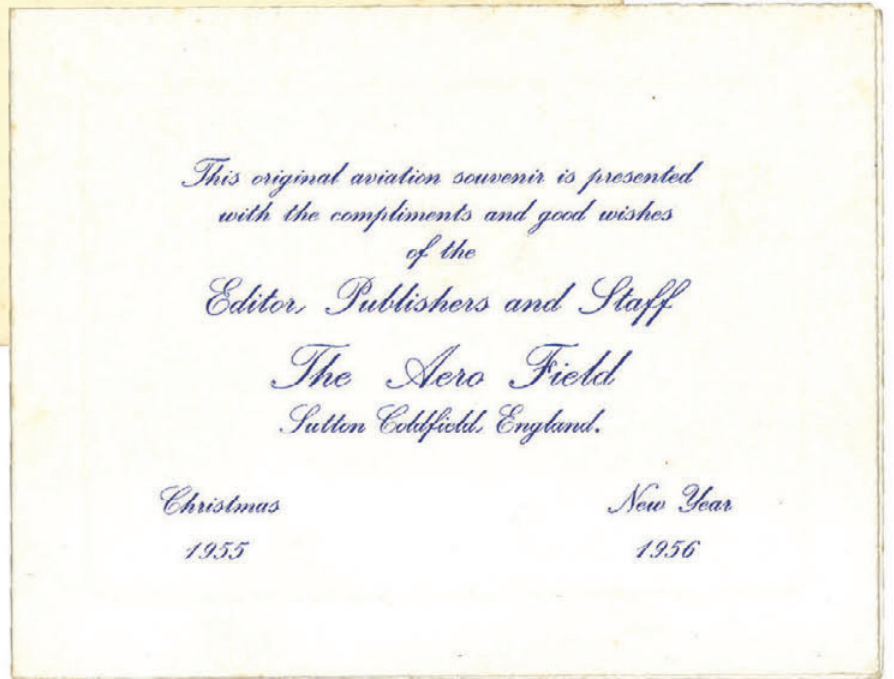 This original aviation souvenir is presented
with the compliments and good wishes
of the
Editor, Publishers and Staff
The Aero Field
Sutton Coldfield, England.
Christmas
1955
New Year
1956